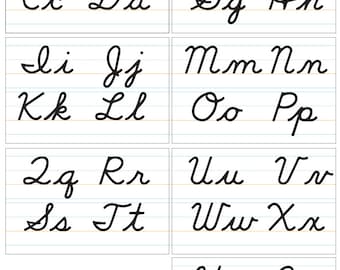 Cc Dd
Gg Hh
Ii Jj
Kk Ll
Mm Nn
Oo Pp
Qq Rr
Ss Tt
Uu Vv
Ww Xx